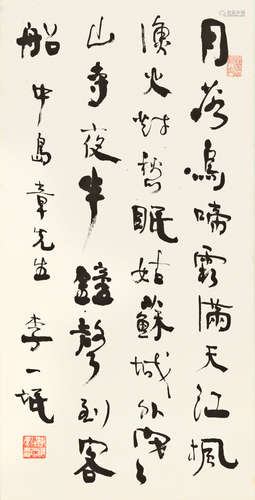 月落烏啼霜滿天江楓
漁火對愁眠姑蘇城外寒
山寺夜半鐘聲到客
船 中島章先生 李一氓